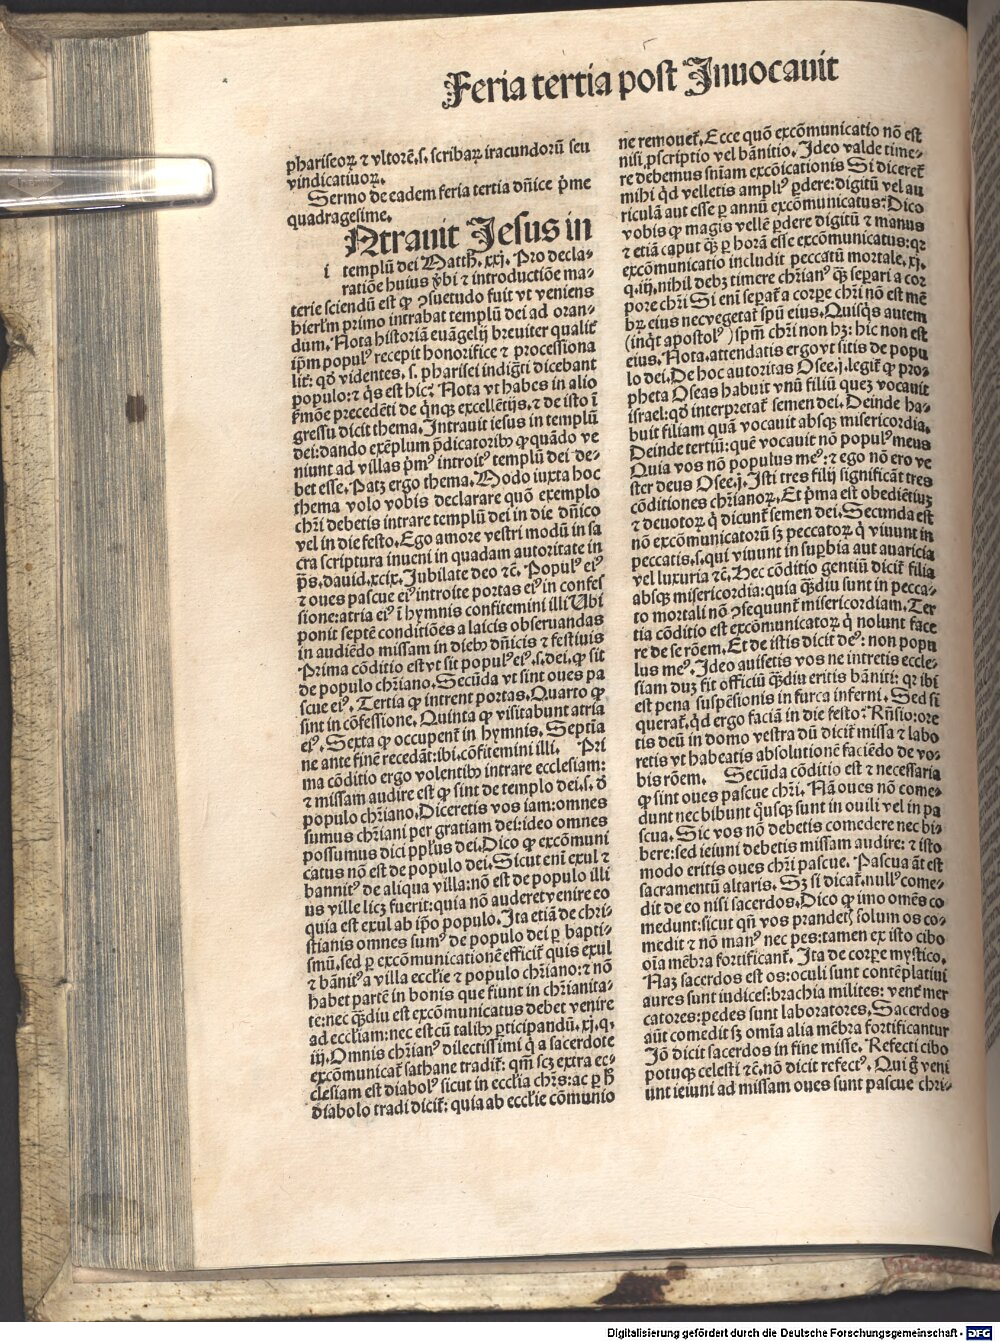 Feria tertia post Inuocauit
phariseoꝝ ⁊ vltorẽ.s. scribaꝝ iracundorũ seu
vindicatiuoꝝ.
Sermo de eadem feria tertia dñice p̃me
quadragesime.
Ntrauit Jesus in
i templũ dei Matth̃. xxj. Pro decla-
ratiõe huius ỽbi ⁊ introductiõe ma-
terie sciendũ est ꝙ ꝯsuetudo fuit vt veniens
hierl̃m primo intrabat templũ dei ad oran-
dum. Nota historiã euãgelij breuiter qualit̃
ip̃m populꝰ recepit honorifice ⁊ processiona
lit̃: qđ videntes .s. pharisei indigñti dicebant
populo: ⁊ qͥs est hic: Nota vt habes in alio
ẜmõe precedẽti de qͥnqꝫ excellẽtijs. ⁊ de isto ĩ
gressu dicit thema. Intrauit iesus in templũ
dei: dando exẽplum p̃dicatoribꝰ ꝙ quãdo ve
niunt ad villas p̃mꝰ introitꝰ templũ dei de-
bet esse. Patꝫ ergo thema. Modo iuxta hoc
thema volo vobis declarare quõ exemplo
chr̃i debetis intrare templũ dei in die dñico
vel in die festo. Ego amore vestri modũ in sa
cra scriptura inueni in quadam autoritate in
p̃s. dauid. xcix. Jubilate deo ⁊c̃. Populꝰ eiꝰ
⁊ oues pascue eiꝰ introite portas eiꝰ in confes
sione: atria eiꝰ ĩ hymnis confitemini illi Ubi
ponit septẽ conditiões a laicis obseruandas
in audiẽdo missam in diebꝰ dñicis ⁊ festiuis
Prima cõditio est vt sit populꝰ eiꝰ .s. dei. ꝙ sit
de populo chr̃iano. Secũda vt sint oues pa
scue eiꝰ. Tertia ꝙ intrent portas. Quarto ꝙ
sint in cõfessione. Quinta ꝙ visitabunt atria
eiꝰ. Sexta ꝙ occupent̃ in hymnis. Septĩa
ne ante finẽ recedãt: ibi. cõfitemini illi. Pri
ma cõditio ergo volentibꝰ intrare ecclesiam:
⁊ missam audire est ꝙ sint de templo dei .s. đ
populo chr̃iano. Diceretis vos iam: omnes
sumus chr̃iani per gratiam dei: ideo omnes
possumus dici ppl̃us dei. Dico ꝙ excõmuni
catus nõ est de populo dei. Sicut enĩ exul ⁊
bannitꝰ de aliqua villa: nõ est de populo illi
us ville licꝫ fuerit: quia nõ auderet venire eo
quia est exul ab ip̃o populo. Ita etiã de chri-
stianis omnes sumꝰ de populo dei ꝑ bapti-
smũ. sed ꝑ excõmunicationẽ efficit̃ quis exul
⁊ bãnitꝰ a villa eccl̃ie ⁊ populo chr̃iano: ⁊ nõ
habet partẽ in bonis que fiunt in chr̃ianita-
te: nec qͣ̃diu est excõmunicatus debet venire
ad eccl̃iam: nec est cũ talibꝰ ꝑticipandũ. xj. q.
iij. Omnis chr̃ianꝰ dilectissimi qͥ a sacerdote
excõmunicat̃ sathane tradit̃: qm̃ scꝫ extra ec-
clesiam est diabolꝰ sicut in eccl̃ia chr̃s: ac ꝑ ħ
diabolo tradi dicit̃: quia ab eccl̃ie cõmunio
ne remouet̃. Ecce quõ excõmunicatio nõ est
nisi ꝓscriptio vel bãnitio. Ideo valde time-
re debemus sñiam excõicationis Si diceret̃
mihi qͥd velletis ampliꝰ ꝑdere: digitũ vel au
riculã aut esse ꝑ annũ excõmunicatus: Dico
vobis ꝙ magis vellẽ ꝑdere digitũ ⁊ manus
⁊ etiã caput qͣ̃ ꝑ horã esse excõmunicatus: qꝛ
excõmunicatio includit peccatũ mortale. xj.
q. iij. nihil debꝫ timere chr̃ianꝰ qͣ̃ separi a cor
pore chr̃i Si enĩ separat̃ a corꝑe chr̃i nõ est mẽ
bꝝ eius nec vegetat̃ spũ eius. Quisqͥs autem
(inqͥt apostolꝰ) spm̃ chr̃i non hꝫ: hic non est
eius. Nota. attendatis ergo vt sitis de popu
lo dei. De hoc autoritas Osee. j. legit̃ ꝙ pro-
pheta Oseas habuit vnũ filiũ queꝫ vocauit
israel: qđ interpretat̃ semen dei. Deinde ha-
buit filiam quã vocauit absqꝫ misericordia.
Deinde tertiũ: quẽ vocauit nõ populꝰ meus
Quia vos nõ populus meꝰ: ⁊ ego nõ ero ve
ster deus Osee. j. Isti tres filij significãt tres
cõditiones chr̃ianoꝝ. Et p̃ma est obediẽtiuꝫ
⁊ deuotoꝝ qͥ dicunt̃ semen dei. Secunda est
nõ excõmunicatorũ sꝫ peccatoꝝ qͥ viuunt in
peccatis .s. qui viuunt in suꝑbia aut auaricia
vel luxuria ⁊c̃. Hec cõditio gentiũ dicit̃ filia
absqꝫ misericordia: quia qͣ̃diu sunt in pecca-
to mortali nõ ꝯsequunt̃ misericordiam. Ter
tia cõditio est excõmunicatoꝝ qͥ nolunt face
re de se rõem. Et de istis dicit deꝰ: non popu
lus meꝰ. Ideo auisetis vos ne intretis eccle-
siam duꝫ fit officiũ qͣ̃diu eritis bãniti: qꝛ ibi
est pena suspẽsionis in furca inferni. Sed si
querat̃. qͥd ergo faciã in die festo: Rñsio: ore
tis deũ in domo vestra dũ dicit̃ missa ⁊ labo
retis vt habeatis absolutionẽ faciẽdo de vo-
bis rõem. Secũda cõditio est ⁊ necessaria
ꝙ sint oues pascue chr̃i. Nã oues nõ come-
dunt nec bibunt qͥusqꝫ sunt in ouili vel in pa
scua. Sic vos nõ debetis comedere nec bi-
bere: sed ieiuni debetis missam audire: ⁊ isto
modo eritis oues chr̃i pascue. Pascua aũt est
sacramentũ altaris. Sꝫ si dicat̃. nullꝰ come-
dit de eo nisi sacerdos. Dico ꝙ imo omẽs co
medunt: sicut qñ vos prandetꝭ solum os co-
medit ⁊ nõ manꝰ nec pes: tamen ex isto cibo
oĩa mẽbra fortificant̃. Ita de corꝑe mystico.
Naꝫ sacerdos est os: oculi sunt contẽplatiui
aures sunt iudices: brachia milites: vent̃ mer
catores: pedes sunt laboratores. Sacerdos
aũt comedit sꝫ omĩa alia mẽbra fortificantur
Jõ dicit sacerdos in fine misse. Refecti cibo
potuqꝫ celesti ⁊c̃. nõ dicit refectꝰ. Qui g̃ veni
unt ieiuni ad missam oues sunt pascue chri-
Digitalisierung gefördert durch die Deutsche Forschungsgemeinschaft - DFG